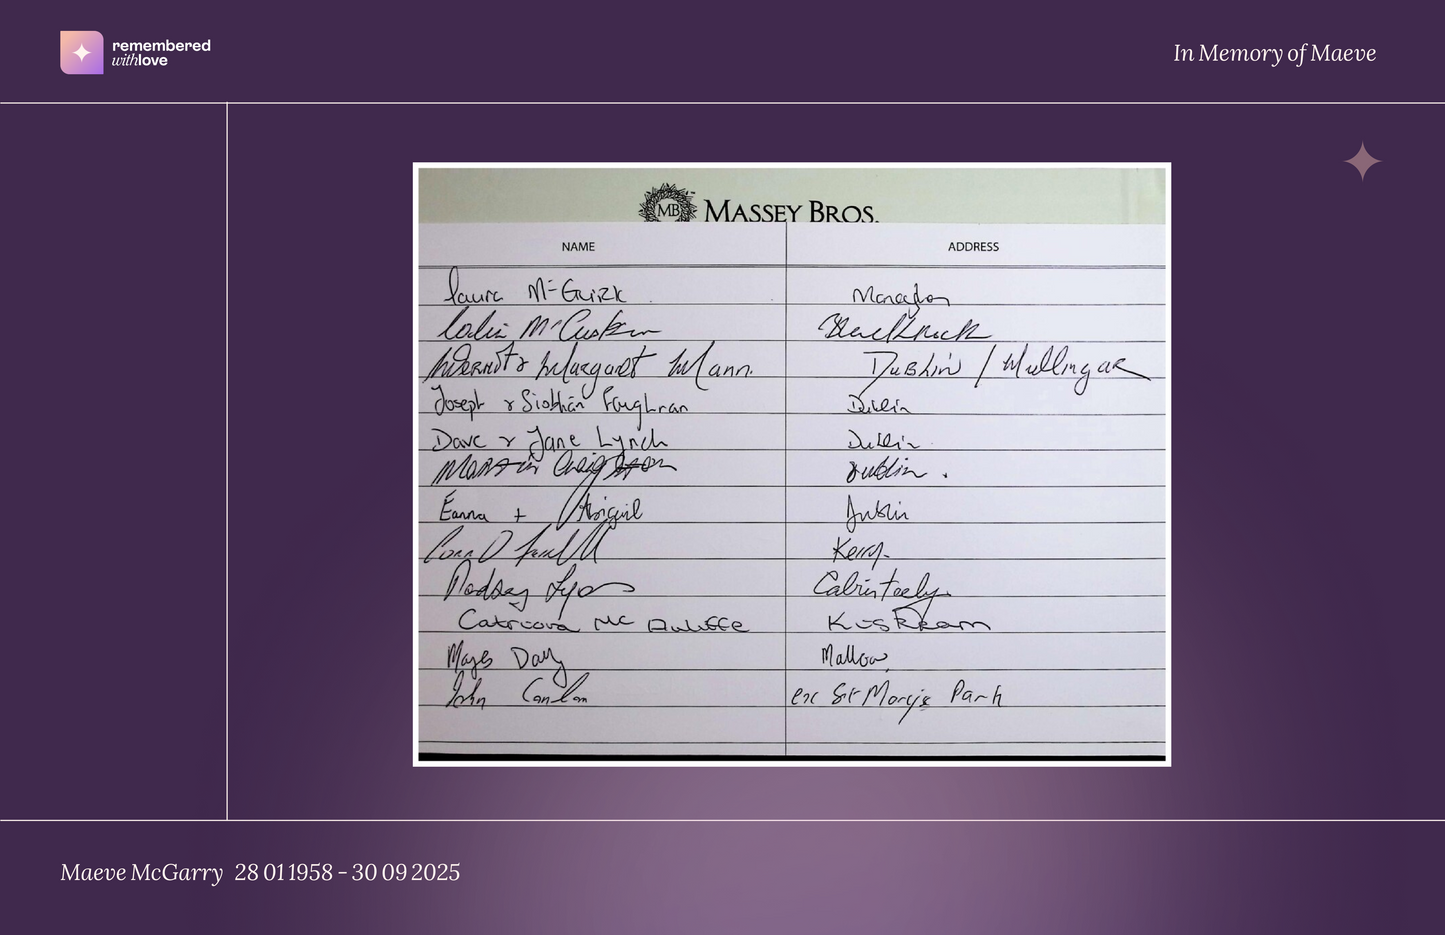 remembered
withlove
In Memory of Maeve
MB MASSEY BROS.
NAME ADDRESS
Laura McGuirk Monaghan
Colin McCusker Blackrock
Dermot & Margaret Mann. Dublin / Mullingar
Joseph & Siobhán Foughran Dublin
Dave & Jane Lynch Dublin
Martin Creighton Dublin.
Eanna + Abigail Dublin
Kerry.
Lyons Cabinteely.
Catriona Mc Auliffe
Day Mallow
John Conlon ex St Mary's Park
Maeve McGarry 28 01 1958 – 30 09 2025